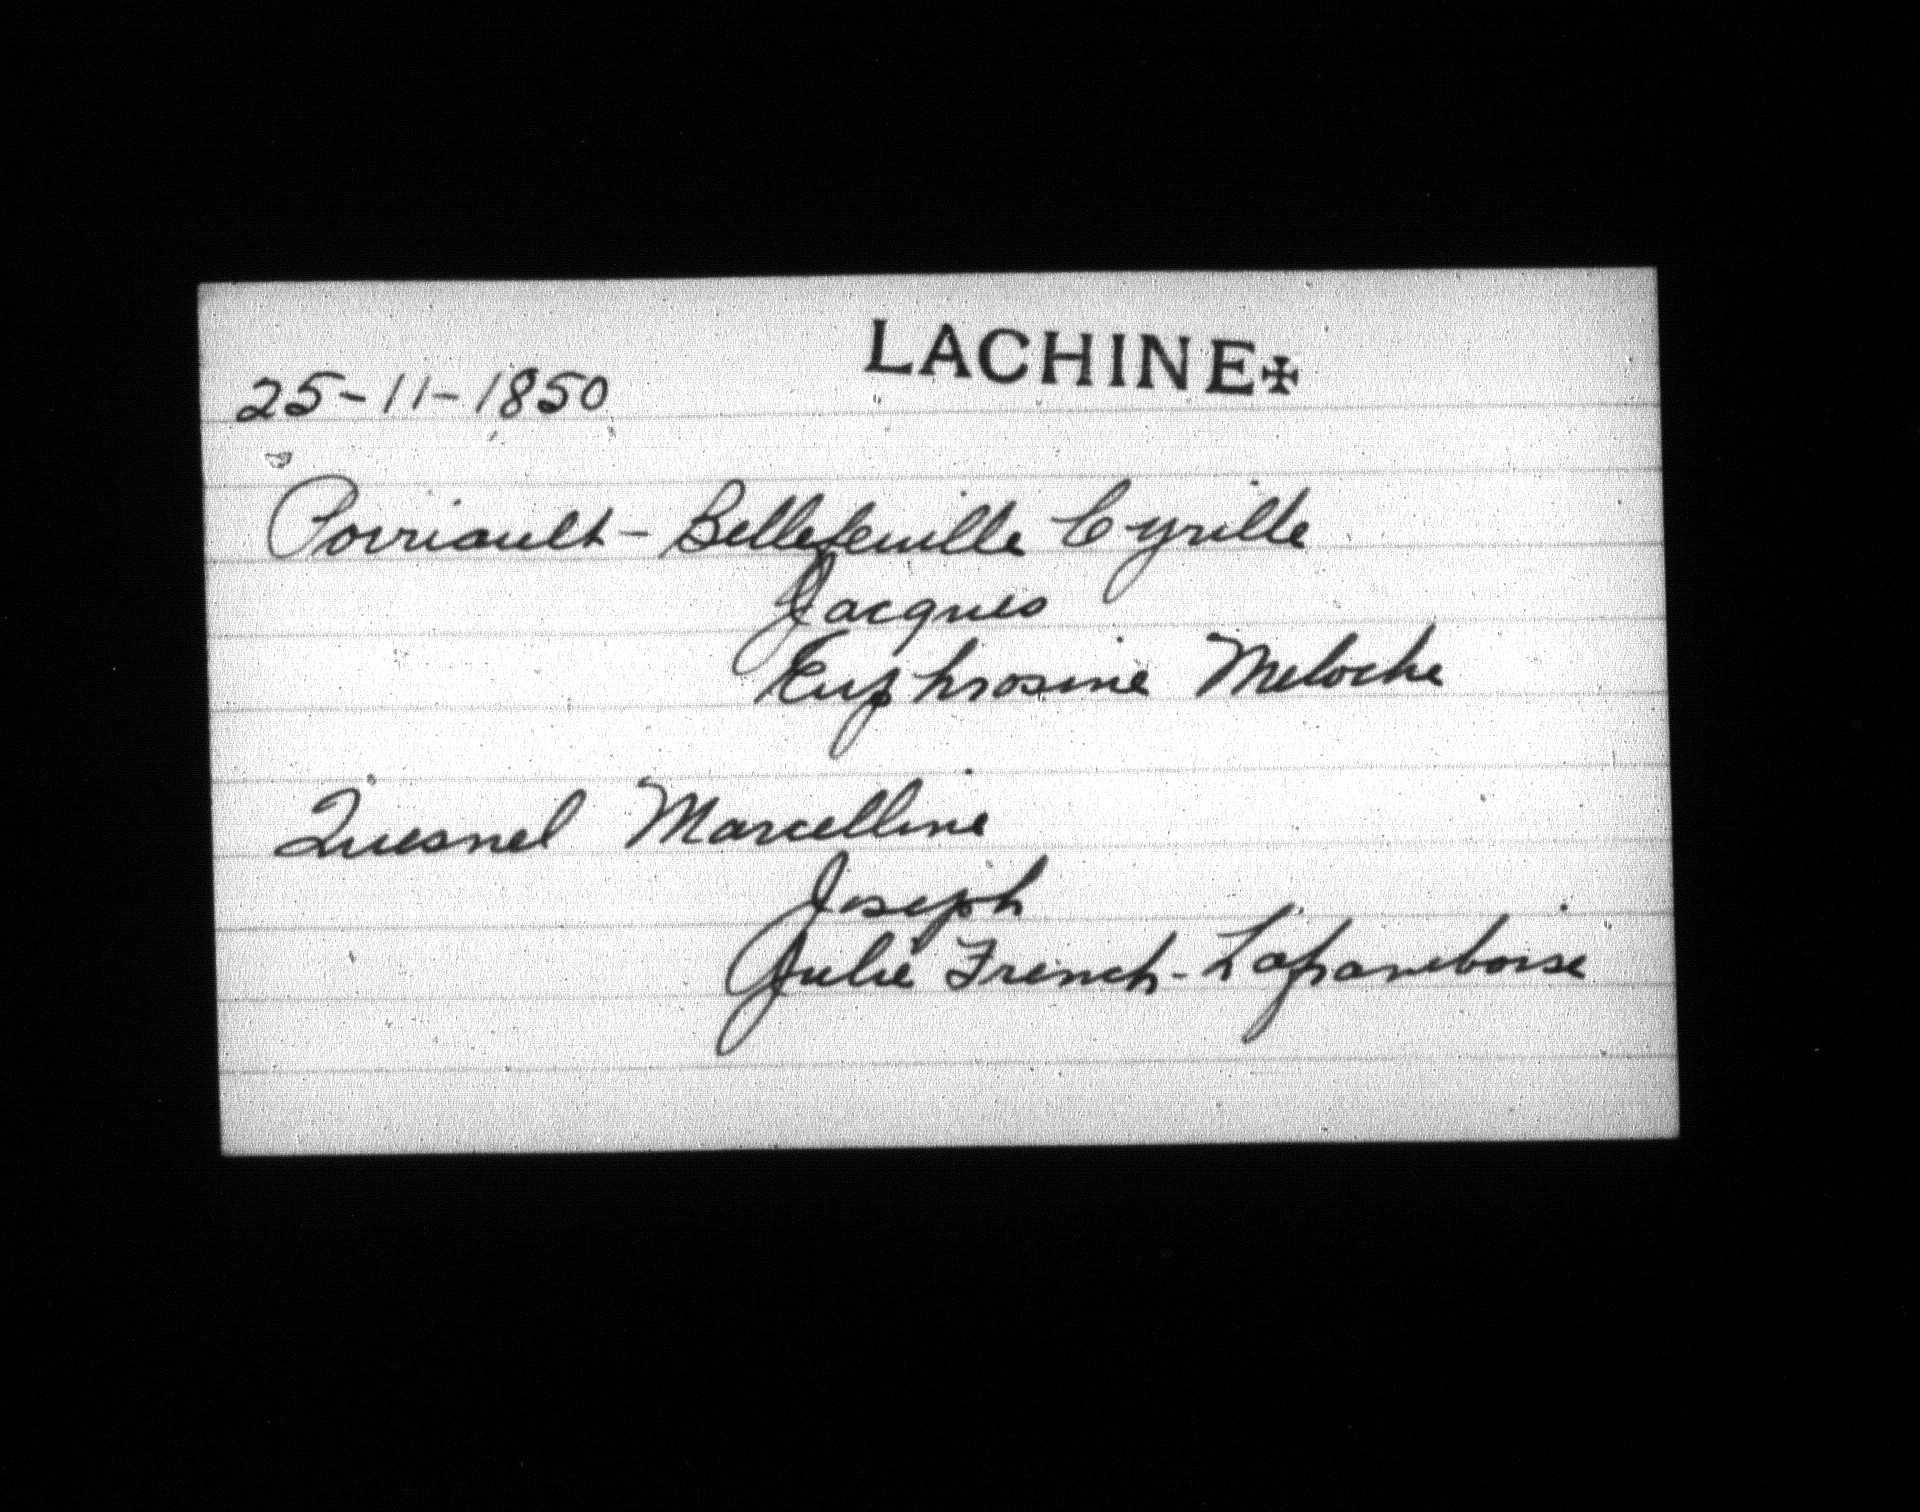 LACHINE✠
25-11-1850
Porriault-Bellefeuille Cyrille
Jacques
Euphrosine Meloche
Quesnel Marcelline
Joseph
Julie French-Laframboise